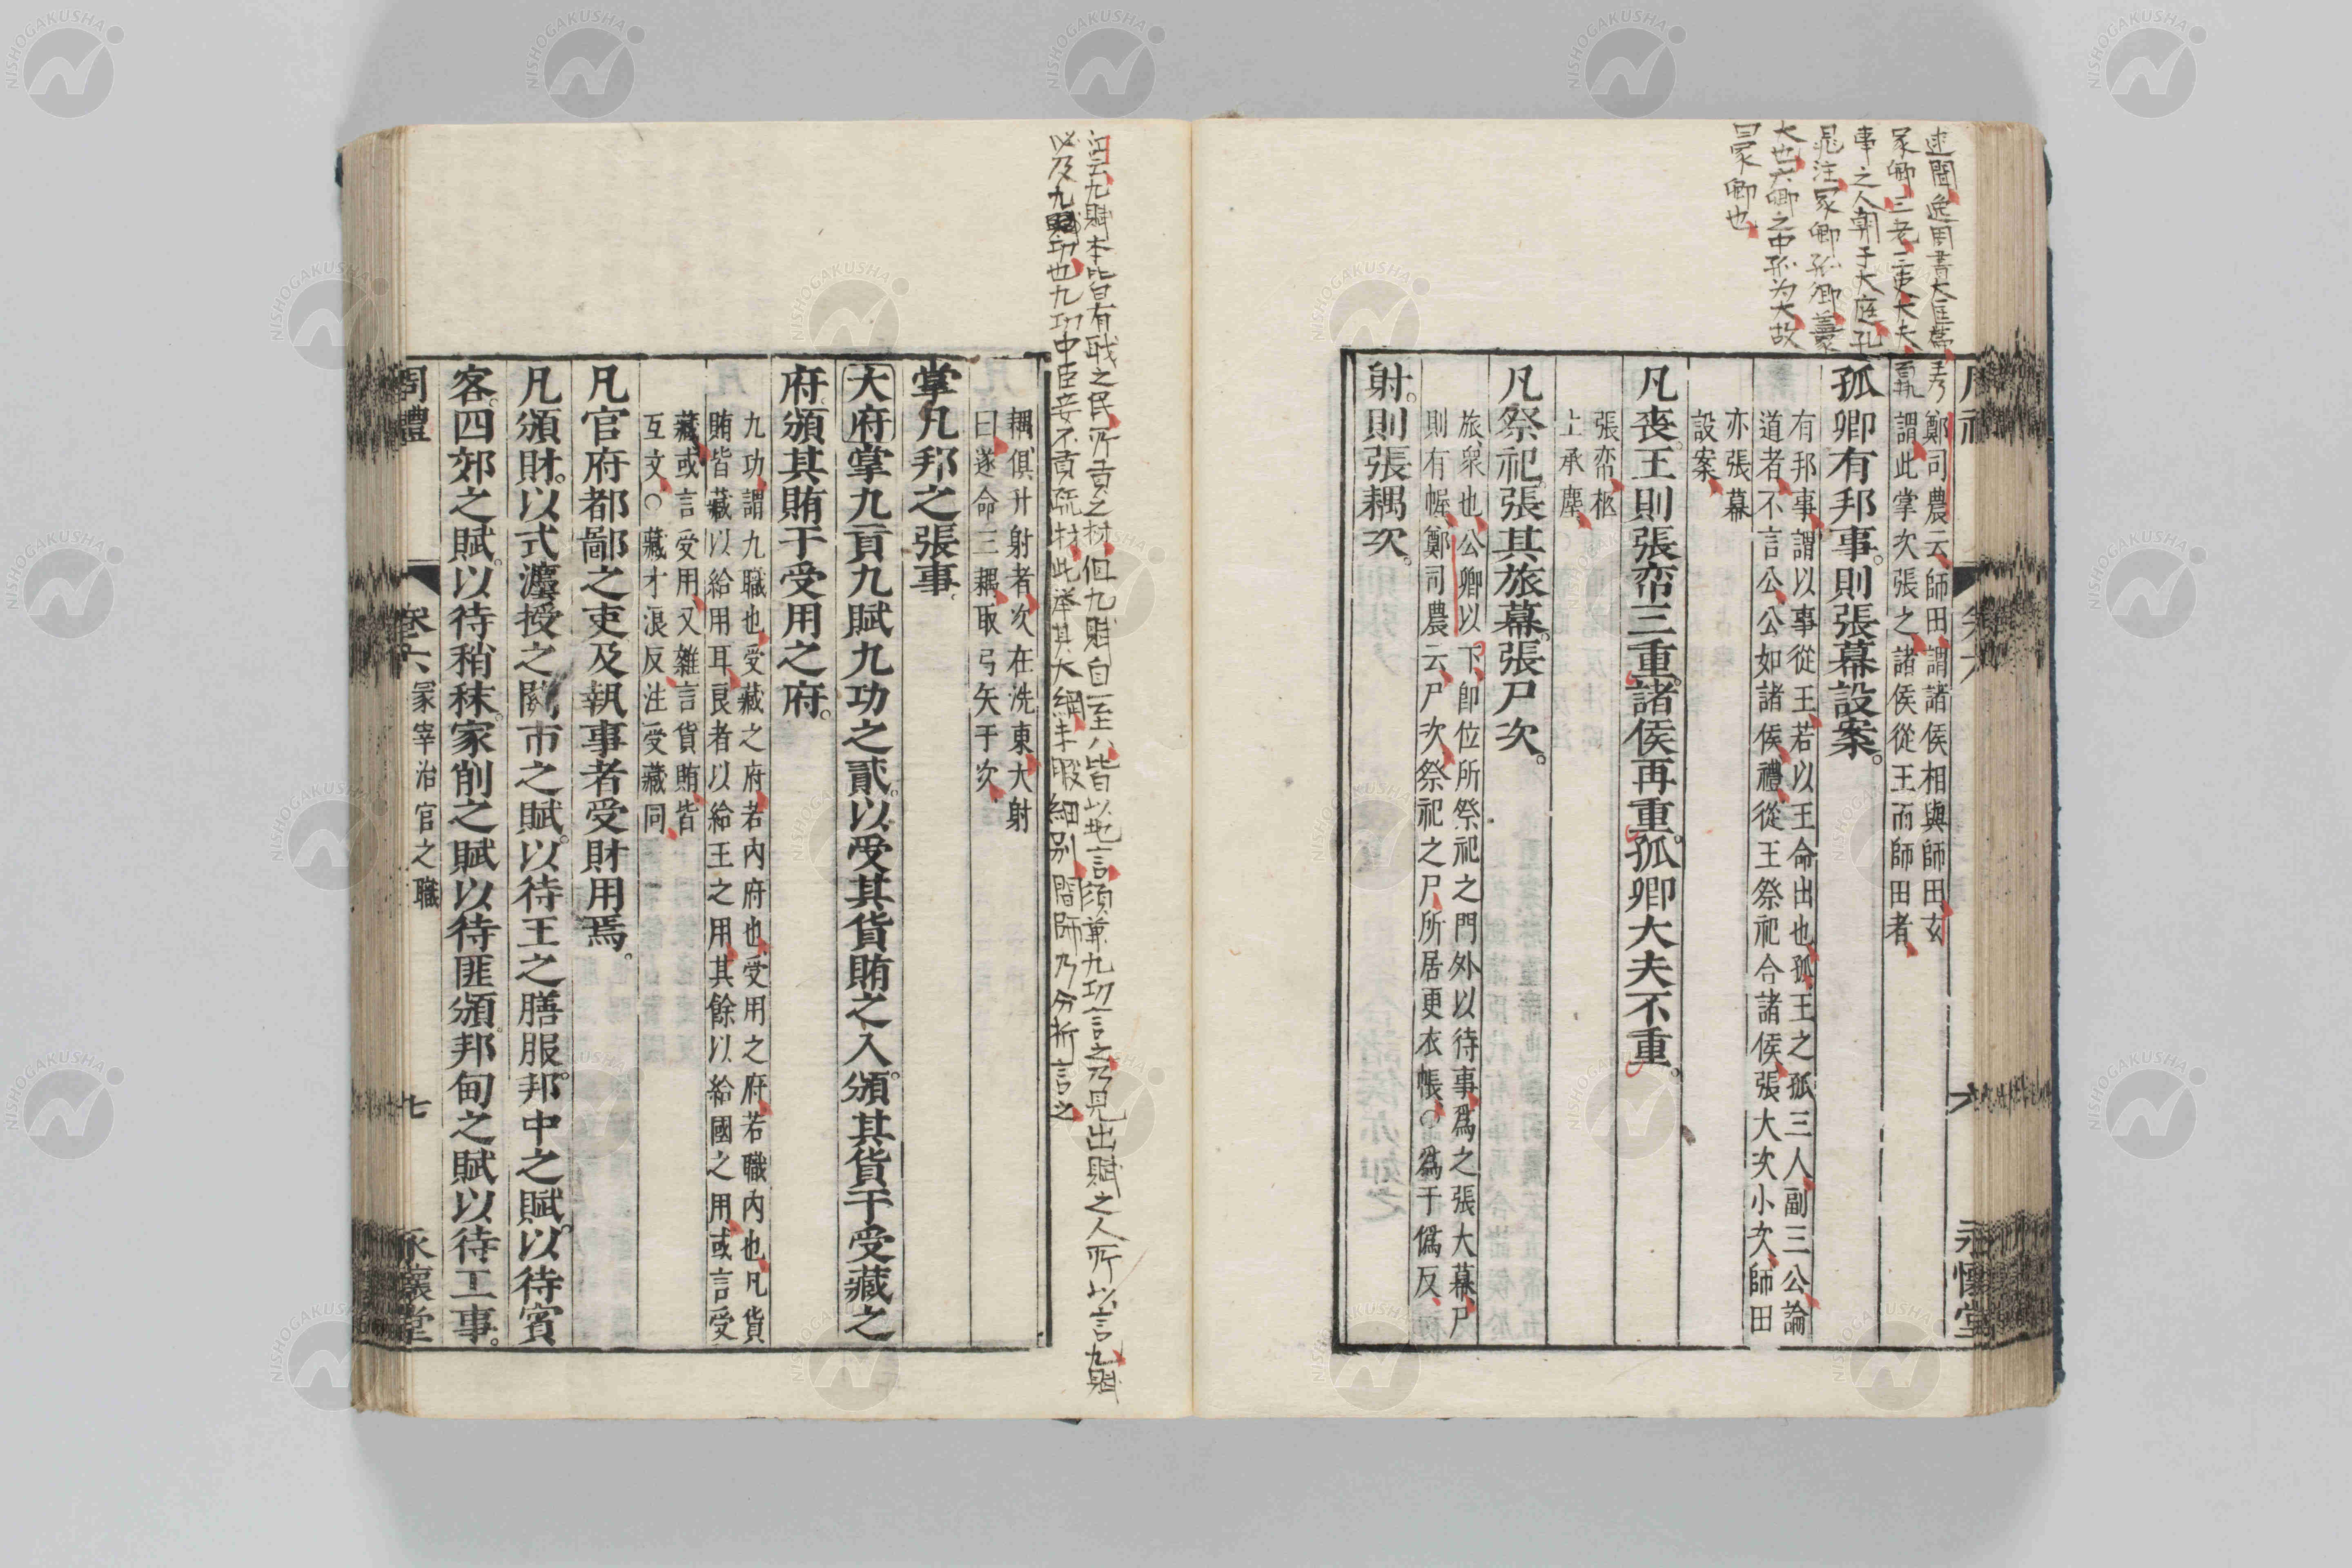 逑聞逸周書大匡篇
冢卿三老三吏大夫百執
事之人朝于大庭孔
晁注冢卿孤卿蓋冢
大也六卿之中孤为大故
曰冢卿也
永懷堂
六
鄭司農云師田謂諸侯相與師田玄
謂此掌次張之諸侯從王而師田者
孤卿有邦事。則張幕設案。
有邦事謂以事從王若以王命出也孤王之孤三人副三公論
道者不言公公如諸侯禮從王祭祀合諸侯張大次小次師田
亦張幕
設案
凡喪。王則張帟三重。諸侯再重。孤卿大夫不重。
張帟柩
上承塵
凡祭祀。張其旅幕。張尸次。
旅衆也公卿以下卽位所祭祀之門外以待事爲之張大幕尸
則有幄鄭司農云尸次祭祀之尸所居更衣帳○爲于僞反
射。則張耦次。
江云九賦本皆有職之民所貢之材但九賦自一至八皆以地言須兼九功言之乃見出賦之人所以言九賦
以及九功也九功中臣妾不貢疏材此举其大綱未暇細别閭師乃分析言之
耦俱升射者次在洗東大射
曰遂命三耦取弓矢于次
掌凡邦之張事。
大府掌九貢九賦九功之貳。以受其貨賄之入。頒其貨于受藏之
府。頒其賄于受用之府。
九功謂九職也受藏之府若內府也受用之府若職內也凡貨
賄皆藏以給用耳良者以給王之用其餘以給國之用或言受
藏或言受用又雜言貨賄皆
互文○藏才浪反注受藏同
凡官府都鄙之吏及執事者受財用焉。
凡頒財。以式灋授之。關市之賦。以待王之膳服。邦中之賦。以待賓
客。四郊之賦。以待稍秣。家削之賦以待匪頒。邦甸之賦以待工事。
周禮 卷六 冢宰治官之職 七 永懷堂